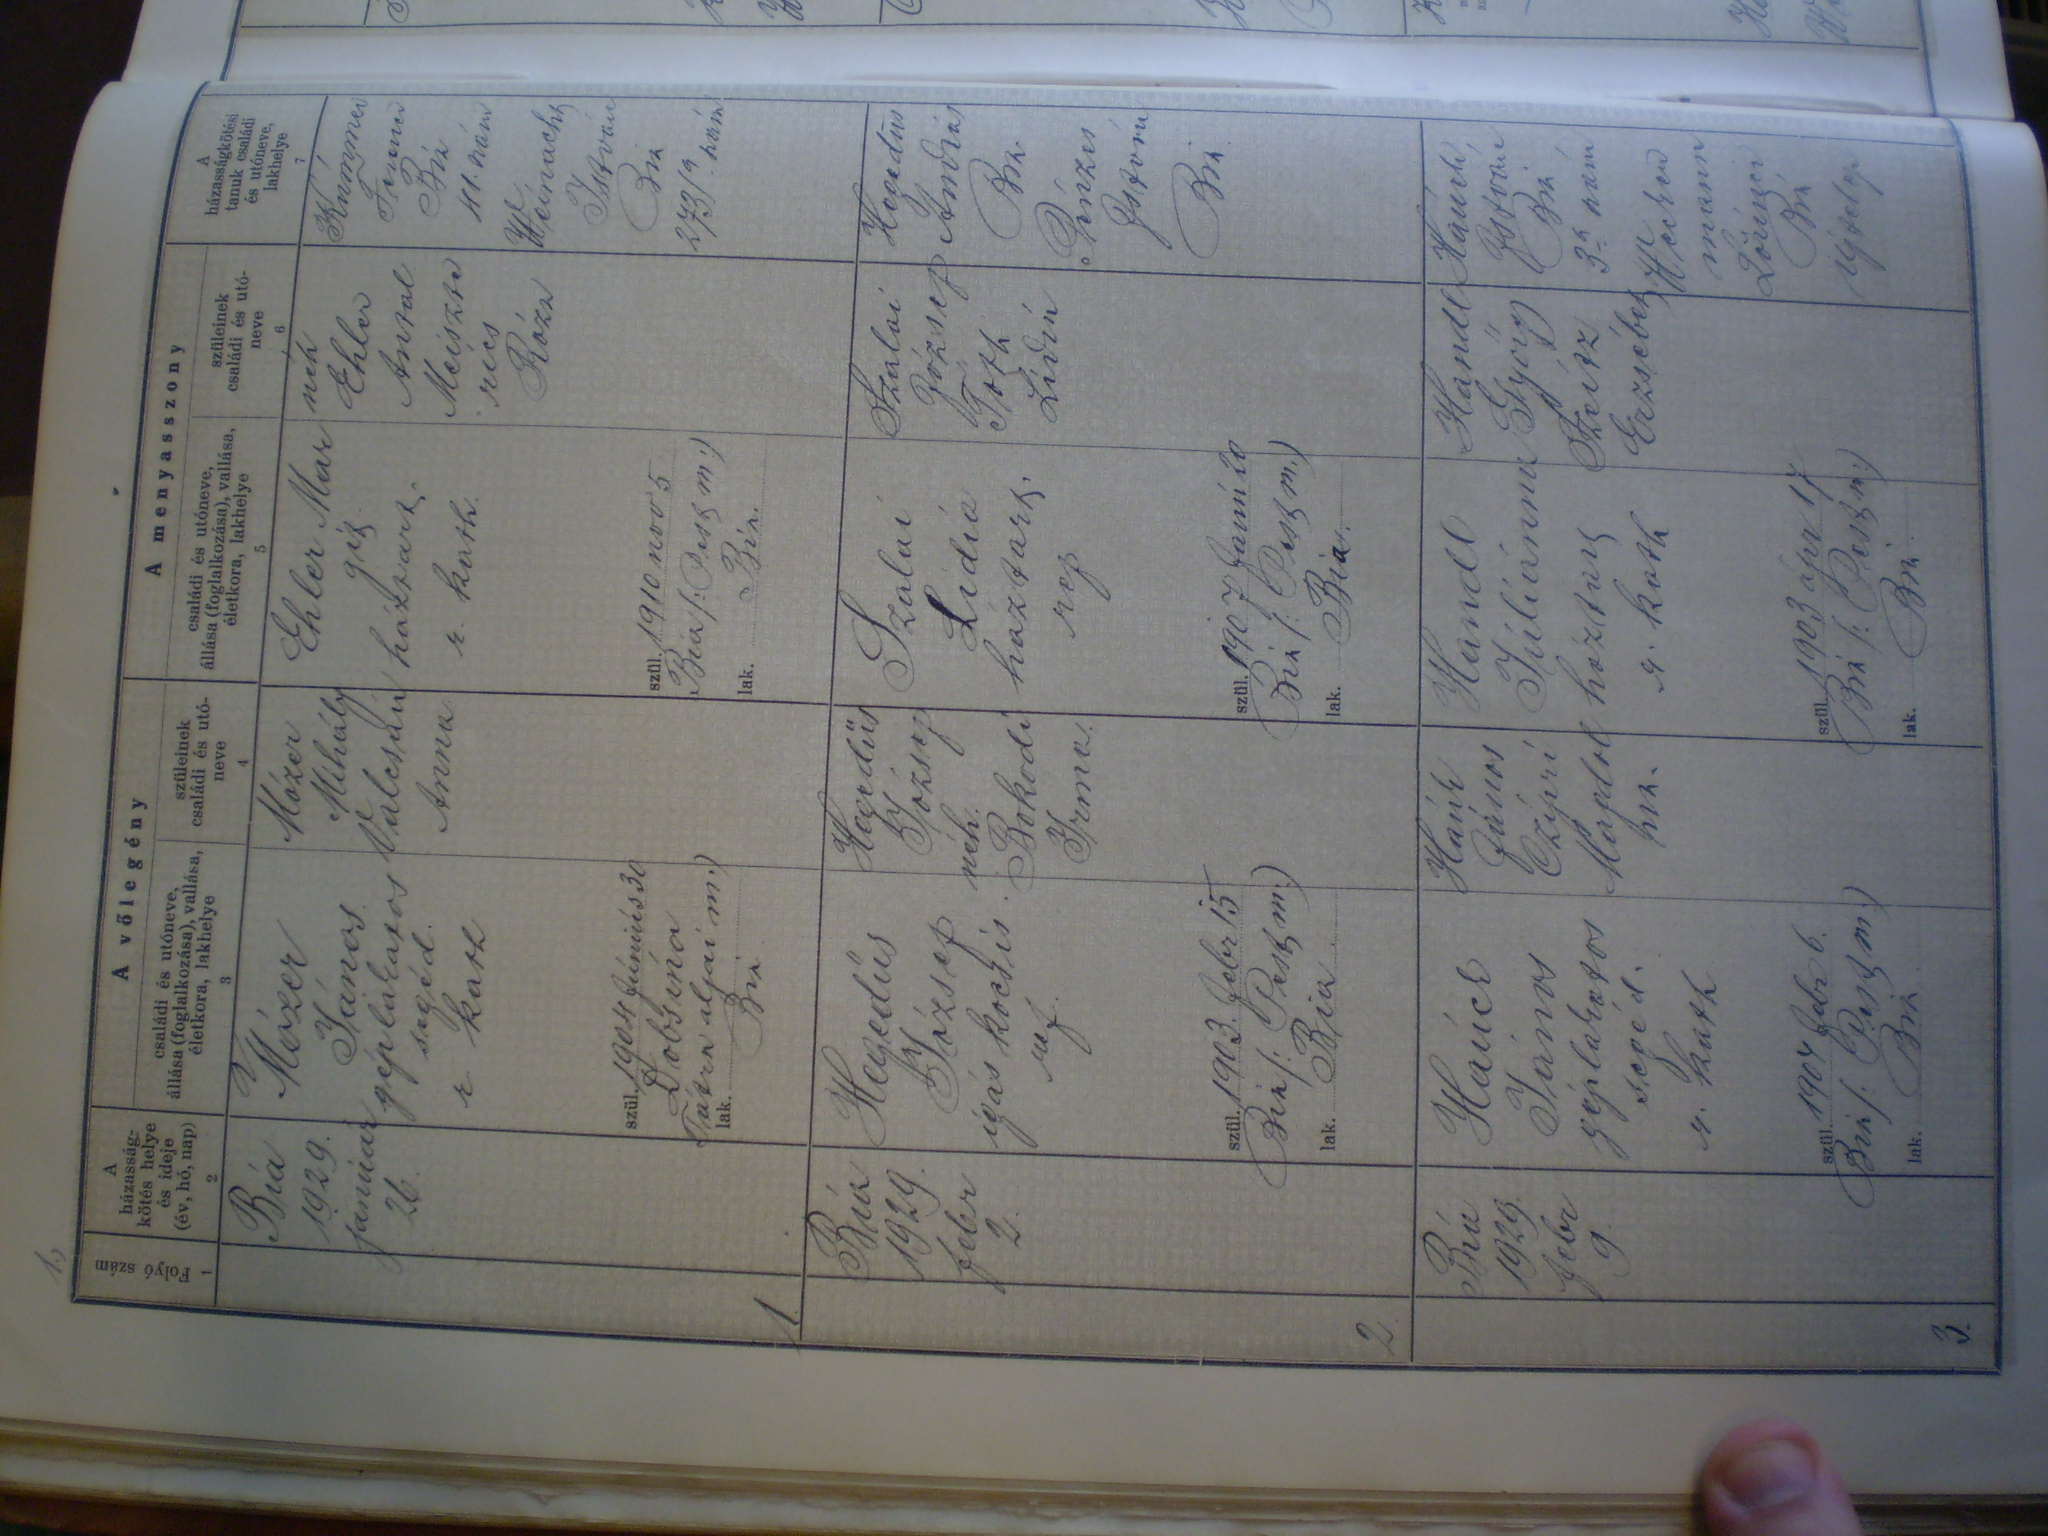 1.
A vőlegény
A menyasszony
Folyó szám
A
házasság-
kötés helye
és ideje
(év, hó, nap)
családi és utóneve,
állása (foglalkozása), vallása,
életkora, lakhelye
szüleinek
családi és utó-
neve
családi és utóneve,
állása (foglalkozása), vallása,
életkora, lakhelye
szüleinek
családi és utó-
neve
A
házasságkötési
tanuk családi
és utóneve,
lakhelye
1
2
3
4
5
6
7
1.
Bia
1929.
január
26.
Mózer
János
géplakatos
segéd.
r kath
szül. 1904 június 30
Dobsina
Tátra aljai m.)
lak. Bia
Mózer
Mihály
Valcsán
Anna
Ehler Mar
git
háztart.
r. kath.
szül. 1910 nov 5
Bia (: Pest m:)
lak. Bia.
néh
Ehler
Antal
Meiszte
rics
Róza
Ferenc
Bia
411. szám
István
Bia
273/9 szám
2.
Bia
1929.
febr
2.
Hegedűs
József
igás kocsis.
ref.
szül. 1903. febr 15
Bia (: Pest m:)
lak. Bia
Hegedűs
József
néh.
Bokodi
Irma.
Szalai
Lidia
háztart.
ref
szül. 1907 janu 20
Bia (: Pest m:)
lak. Bia.
Szalai
József
Tóth
Lidia
Hegedűs
András
Bia.
Pénzes
István
Bia
3.
Bia
1929.
febr
9.
Hauck
János
géplakatos
segéd.
r. kath
szül. 1904 febr 6.
Bia (: Pest m:)
lak. Bia
Hauck
János
Czipri
Magdol
na.
Handl
Juliánna
háztart
r. kath
szül. 1903 ápr 17
Bia (: Pest m:)
lak. Bia
Handl
György
Steitz
Erzsébet
Hauck
István
Bia
szám
mann
Lőrincz
Bia